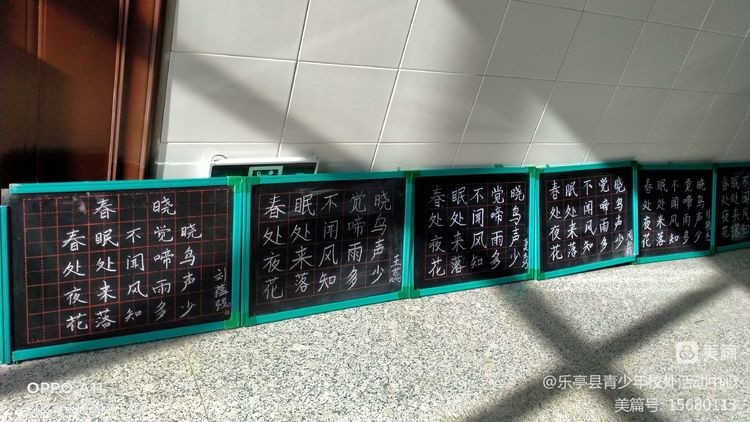 春 晓
春眠不觉晓
处处闻啼鸟
夜来风雨声
花落知多少
春眠不觉晓
处处闻啼鸟
夜来风雨声
花落知多少
春眠不觉晓
处处闻啼鸟
夜来风雨声
花落知多少
春眠不觉晓
处处闻啼鸟
夜来风雨声
花落知多少
春眠不觉晓
处处闻啼鸟
夜来风雨声
花落知多少
OPPO A11
美篇
@乐亭县青少年校外活动中心
美篇号: 15680113